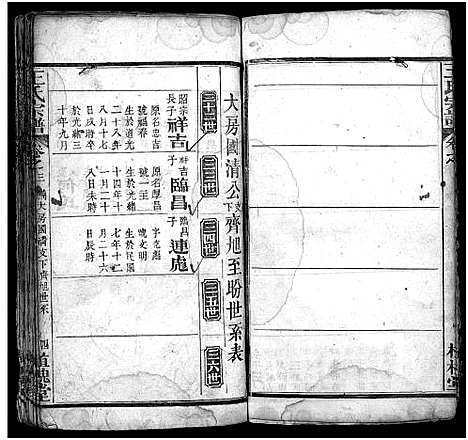 王氏宗譜
大房國清公支下齊旭至盼世系表
三十二世
三三世
三四世
三五世
三六世
昭宗長子
祥吉
原名忠吉
號福春
生於道光
二十八年
八月十七
日以時卒
於光緒三
十年九月
祥吉子
臨昌
原名厚昌
號一至
生於光緒
十四年十
一月二十
八日未時
臨昌子
連彪
字克彪
號文明
生於民國
七年十二
月二十六
日辰時
王氏宗譜
卷之三
大房國清支下齊旭世系
四
植槐堂